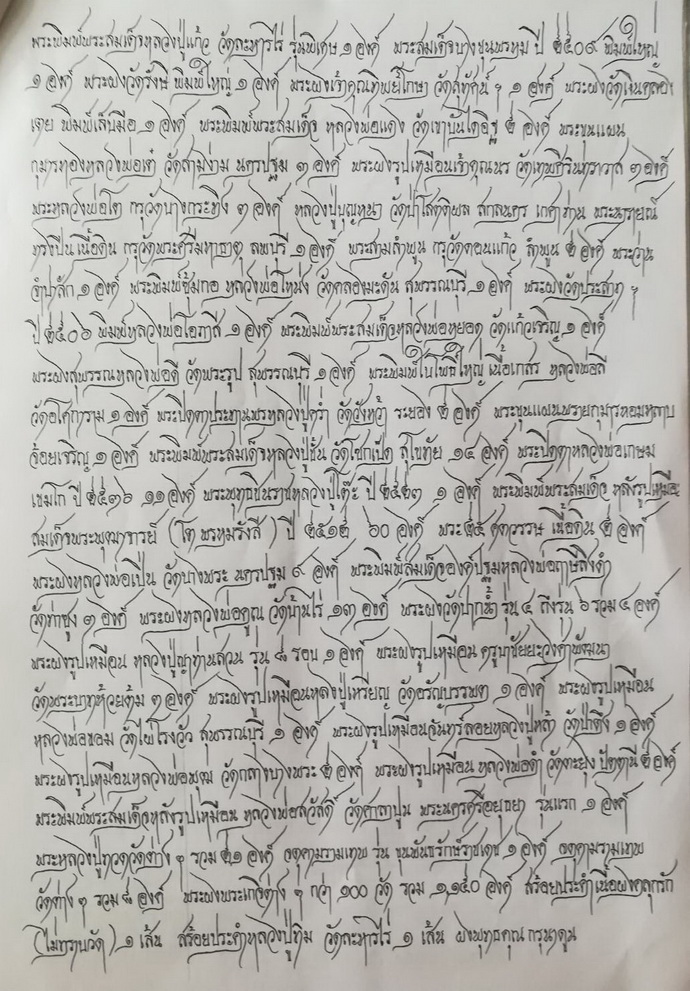 พระพิมพ์พระสมเด็จหลวงปู่แก้ว วัดละหารไร่ รุ่นพิเศษ ๑ องค์ พระสมเด็จบางขุนพรหม ปี ๒๕๐๙ พิมพ์ใหญ่
๑ องค์ พระผงวัดรังษี พิมพ์ใหญ่ ๑ องค์ พระผงเจ้าคุณทิพย์โกษา วัดสุทัศน์ ฯ ๑ องค์ พระผงวัดเงินคลอง
เตย พิมพ์เล็บมือ ๑ องค์ พระพิมพ์พระสมเด็จ หลวงพ่อแดง วัดเขาบันไดอิฐ ๒ องค์ พระขุนแผน
กุมารทองหลวงพ่อเต๋ วัดสามง่าม นครปฐม ๓ องค์ พระผงรูปเหมือนเจ้าคุณนร วัดเทพศิรินทราวาส ๓ องค์
พระหลวงพ่อโต กรุวัดบางกระทิง ๓ องค์ หลวงปู่บุญหนา วัดป่าโสตถิผล สกลนคร เกศาท่าน พระนารายณ์
ทรงปืนเนื้อดิน กรุวัดพระศรีมหาธาตุ ลพบุรี ๑ องค์ พระสามลำพูน กรุวัดดอนแก้ว ลำพูน ๒ องค์ พระว่าน
จำปาสัก ๑ องค์ พระพิมพ์ซุ้มกอ หลวงพ่อโหน่ง วัดคลองมะดัน สุพรรณบุรี ๑ องค์ พระผงวัดประสาท ฯ
ปี ๒๕๐๖ พิมพ์หลวงพ่อโอภาสี ๑ องค์ พระพิมพ์พระสมเด็จหลวงพ่อหยอด วัดแก้วเจริญ ๑ องค์
พระผงสุพรรณหลวงพ่อดี วัดพระรูป สุพรรณบุรี ๑ องค์ พระพิมพ์ใบโพธิ์ใหญ่ เนื้อเกสร หลวงพ่อลี
วัดอโศการาม ๑ องค์ พระปิดตาประทานพรหลวงปู่คร่ำ วัดวังหว้า ระยอง ๒ องค์ พระขุนแผนพรายกุมารหอมหลาบ
จ้อยเจริญ ๑ องค์ พระพิมพ์พระสมเด็จหลวงปู่ชั้น วัดโชกเป็ด สุโขทัย ๑๔ องค์ พระปิดตาหลวงพ่อเกษม
เขมโก ปี ๒๕๓๖ ๑๑ องค์ พระพุทธชินราชหลวงปู่โต๊ะ ปี ๒๕๒๓ ๑ องค์ พระพิมพ์พระสมเด็จ หลังรูปเหมือน
สมเด็จพระพุฒาจารย์ (โต พรหมรังสี) ปี ๒๕๑๕ ๖๐ องค์ พระ ๒๕ ศตวรรษ เนื้อดิน ๒ องค์
พระผงหลวงพ่อเปิ่น วัดบางพระ นครปฐม ๙ องค์ พระพิมพ์สมเด็จองค์ปฐมหลวงพ่อฤาษีลิงดำ
วัดท่าซุง ๓ องค์ พระผงหลวงพ่อคูณ วัดบ้านไร่ ๑๓ องค์ พระผงวัดปากน้ำ รุ่น ๔ ถึงรุ่น ๖ รวม ๔ องค์
พระผงรูปเหมือน หลวงปู่ญาท่านสวน รุ่น ๘ รอบ ๑ องค์ พระผงรูปเหมือน ครูบาชัยยะวงศาพัฒนา
วัดพระบาทห้วยต้ม ๓ องค์ พระผงรูปเหมือนหลวงปู่เหรียญ วัดอรัญบรรพต ๑ องค์ พระผงรูปเหมือน
หลวงพ่อขอม วัดไผ่โรงวัว สุพรรณบุรี ๑ องค์ พระผงรูปเหมือนจันทร์ลอยหลวงปู่หล้า วัดป่าตึง ๑ องค์
พระผงรูปเหมือนหลวงพ่อพุฒ วัดกลางบางพระ ๒ องค์ พระผงรูปเหมือน หลวงพ่อดำ วัดตะยุง ปัตตานี ๒ องค์
พระพิมพ์พระสมเด็จหลังรูปเหมือน หลวงพ่อสวัสดิ์ วัดศาลาปูน พระนครศรีอยุธยา รุ่นแรก ๑ องค์
พระหลวงปู่ทวดวัดต่าง ๆ รวม ๒๑ องค์ จตุคามรามเทพ รุ่น ขุนพันธรักษ์ราชเดช ๑ องค์ จตุคามรามเทพ
วัดต่าง ๆ รวม ๘ องค์ พระผงพระเกจิต่าง ๆ กว่า ๑๐๐ วัด รวม ๑,๑๕๐ องค์ สร้อยประคำเนื้อผงคลุกรัก
(ไม่ทราบวัด) ๑ เส้น สร้อยประคำหลวงปู่ทิม วัดละหารไร่ ๑ เส้น ผงพุทธคุณ กรุนาดูน